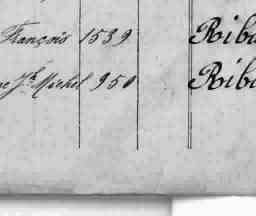 François 1539 Riba
Jh Michel 950 Riba